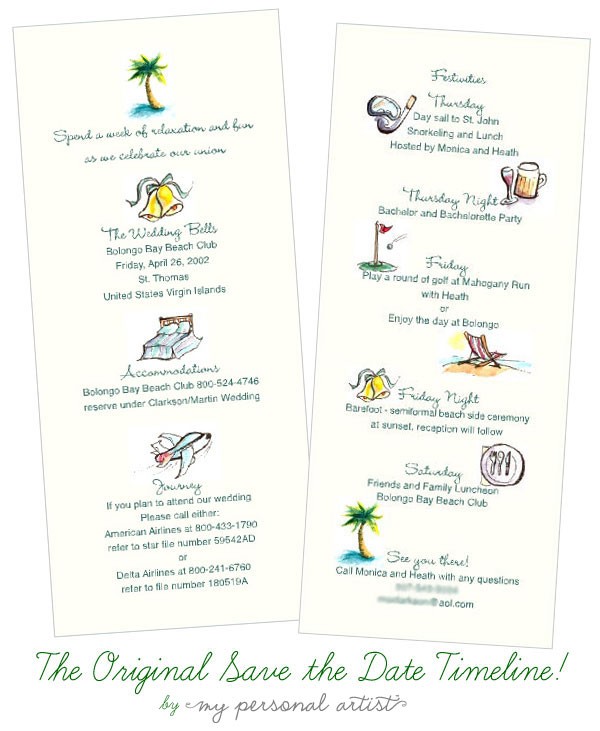 Spend a week of relaxation and fun
as we celebrate our union
The Wedding Bells
Bolongo Bay Beach Club
Friday, April 26, 2002
St. Thomas
United States Virgin Islands
Accommodations
Bolongo Bay Beach Club 800-524-4746
reserve under Clarkson/Martin Wedding
Journey
If you plan to attend our wedding
Please call either:
American Airlines at 800-433-1790
refer to star file number 59542AD
or
Delta Airlines at 800-241-6760
refer to file number 180519A
Festivities
Thursday
Day sail to St. John
Snorkeling and Lunch
Hosted by Monica and Heath
Thursday Night
Bachelor and Bachelorette Party
Friday
Play a round of golf at Mahogany Run
with Heath
or
Enjoy the day at Bolongo
Friday Night
Barefoot - semiformal beach side ceremony
at sunset, reception will follow
Saturday
Friends and Family Luncheon
Bolongo Bay Beach Club
See you there!
Call Monica and Heath with any questions
@aol.com
The Original Save the Date Timeline!
by my personal artist